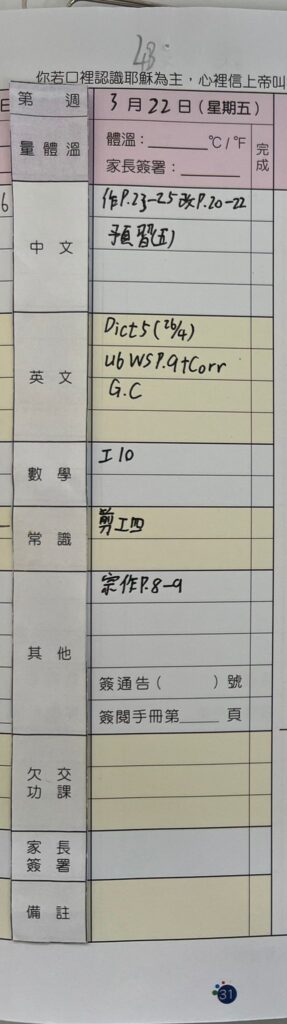 48
你若口裡認識耶穌為主，心裡信上帝叫
第 週 3月22日(星期五)
量體溫 體溫：______°C/°F 完成
家長簽署：______
中文 作P.23-25改P.20-22
預習(五)
英文 Dict 5 (26/4)
U6 WS P.9+Corr
G.C
數學 工10
常識 剪工四
其他 宗作P.8-9
簽通告( )號
簽閱手冊第____頁
欠交功課
家長簽署
備註
31